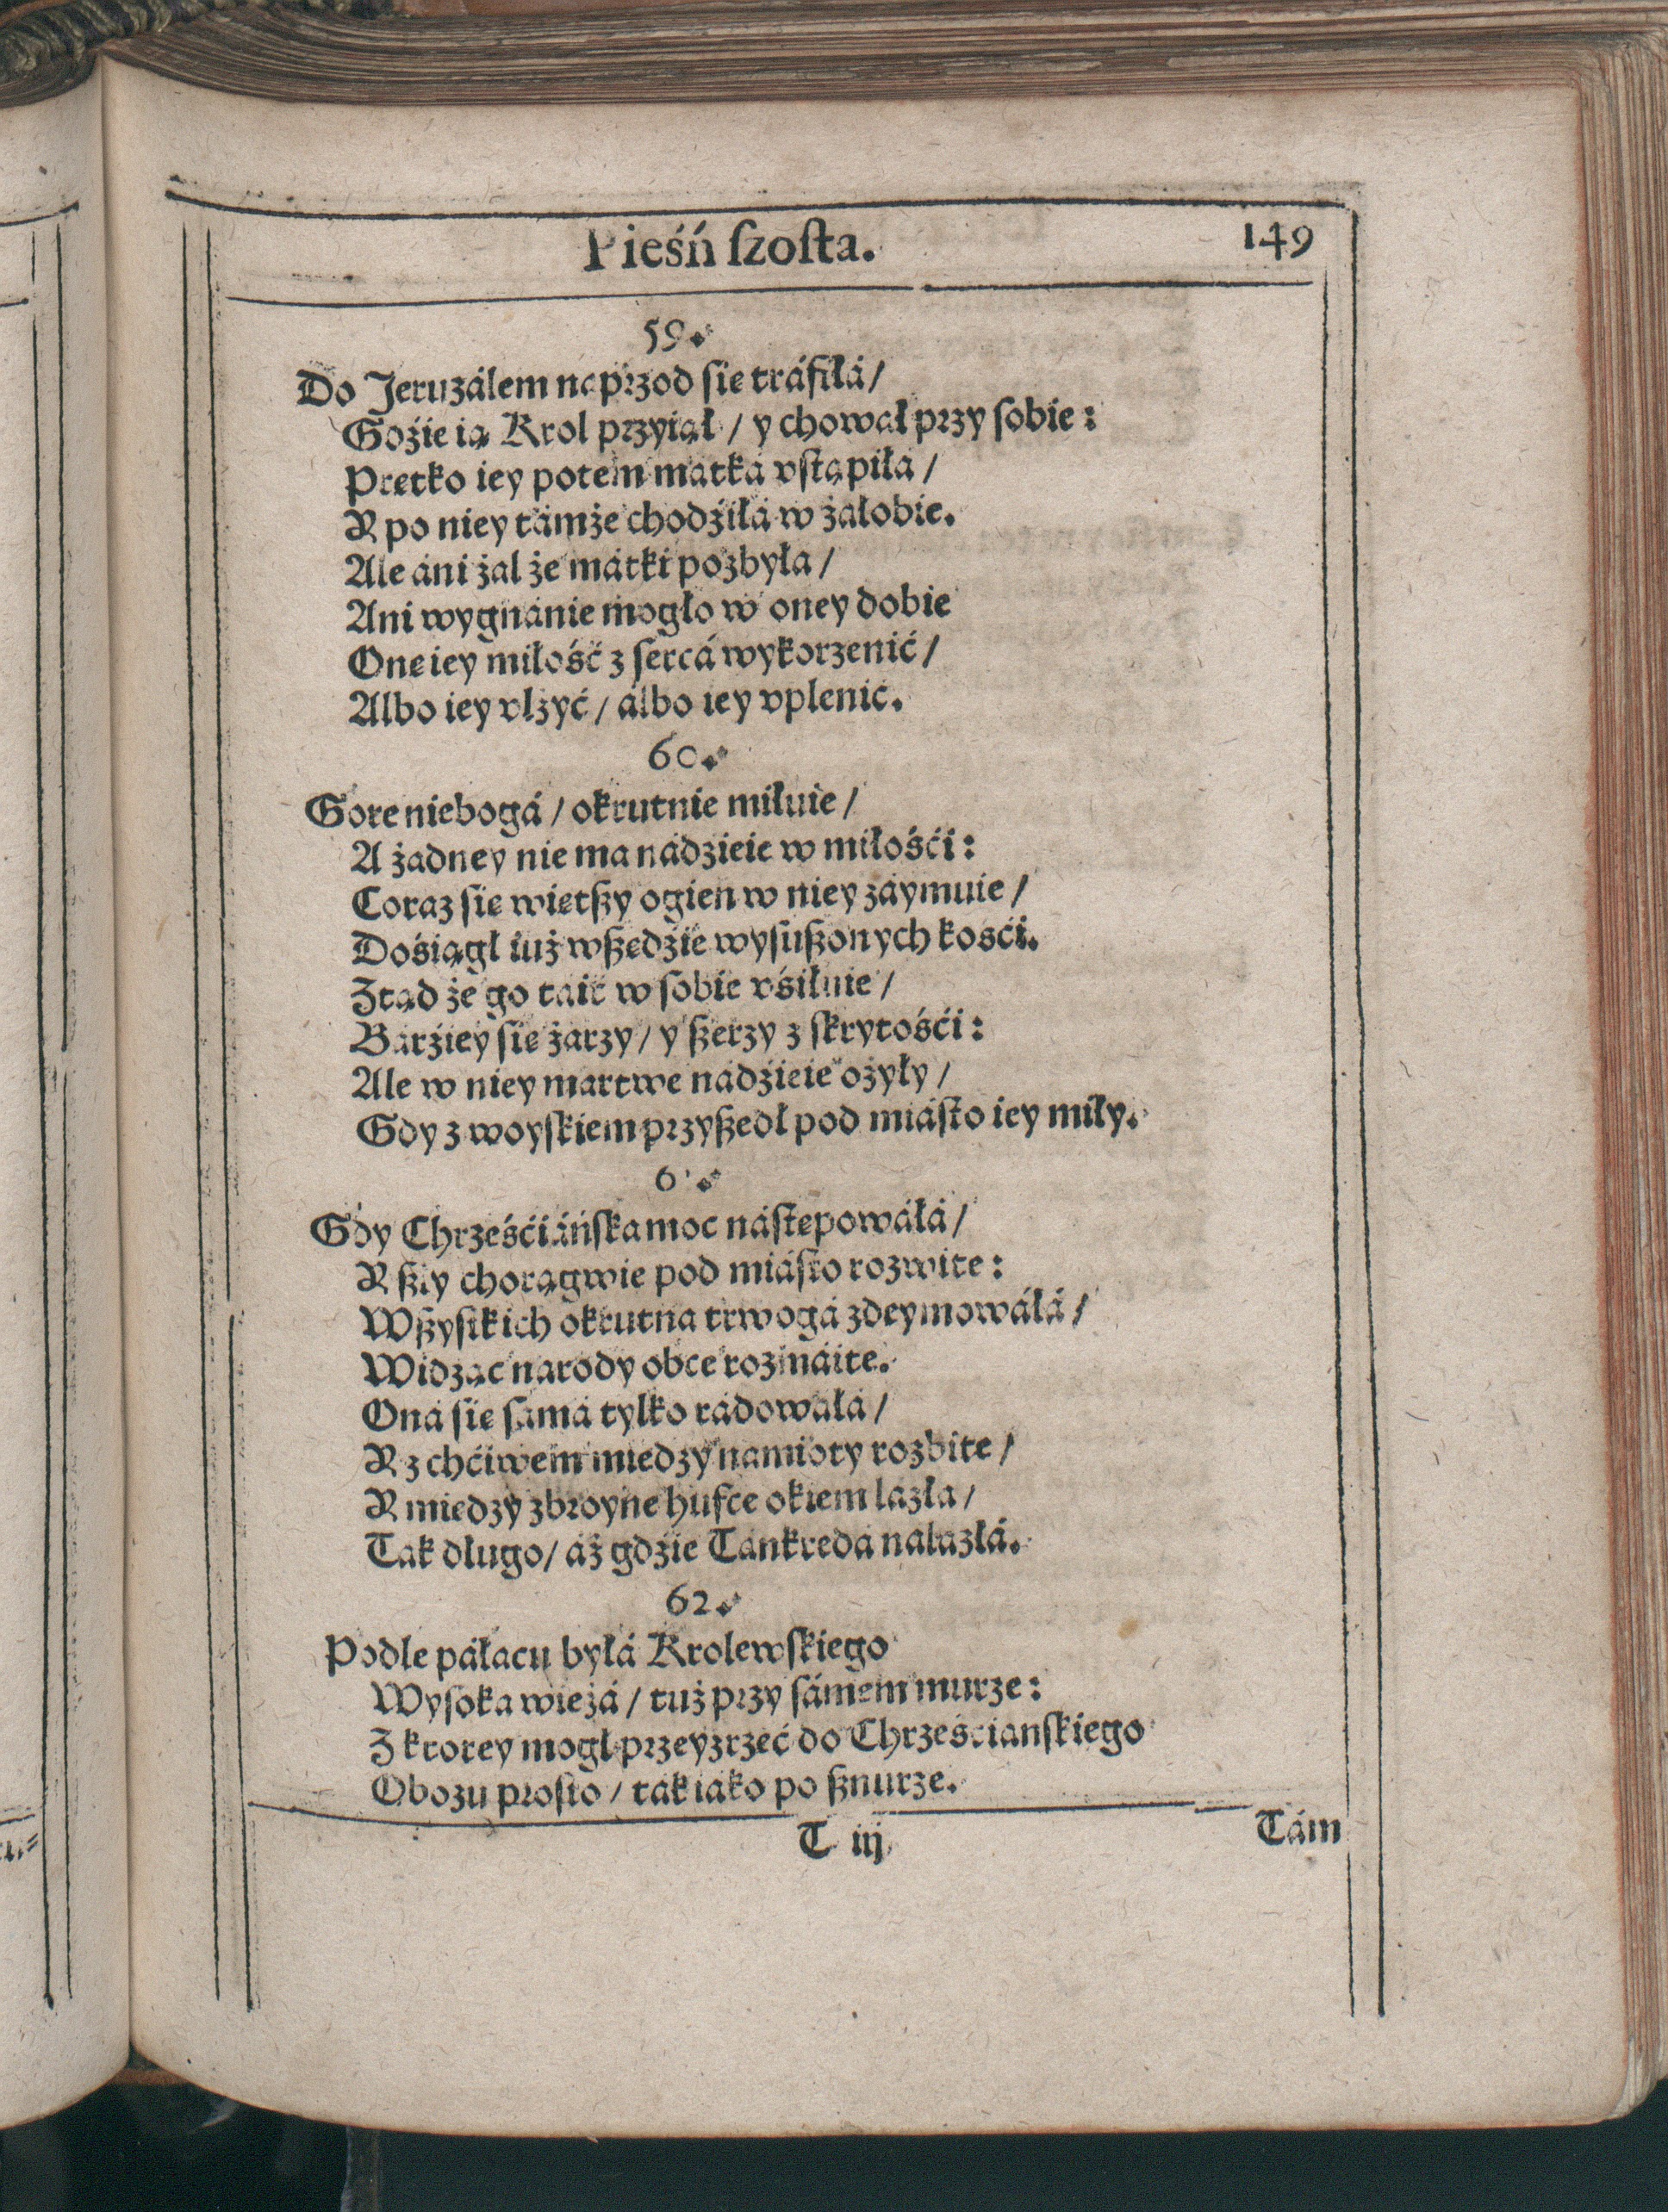 Pieśń ſzoſta.
149
59.
Do Jeruzálem naprzod ſie tráfiłá/
Gdźie ią Krol przyiął/ y chował przy ſobie:
Prętko iey potem matká vſtąpiłá/
Y po niey támże chodźiłá w żałobie.
Ale áni żal że mátki pozbyłá/
Ani wygnánie mogło w oney dobie
Onę iey miłość z ſercá wykorzenić/
Albo iey vlżyć/ álbo iey vplenić.
60.
Gore niebogá/ okrutnie miłuie/
A żadney nie ma nádzieie w miłośći:
Coraz ſie więtßy ogień w niey záymuie/
Dośiągł iuż wßędźie wyſußonych kośći.
Ztąd że go táić w ſobie vśiłuie/
Bárźiey ſie żarzy/ y ßerzy z ſkrytośći:
Ale w niey martwe nádźieie ożyły/
Gdy z woyſkiem przyßedł pod miáſto iey miły.
6
Gdy Chrześćiáńſka moc náſtępowáłá/
Y ßły chorągwie pod miáſto rozwite:
Wßyſtkich okrutna trwogá zdeymowáłá/
Widząc narody obce rozmáite.
Oná ſie ſámá tylko rádowáłá/
Y z chćiwem miedzy namioty rozbite/
Y miedzy zbroyne hufce okiem lázłá/
Tak długo/ áż gdźie Tánkredá nálazłá.
62.
Podle páłacu byłá Krolewſkiego
Wyſoka wieżá/ tuż przy ſámem murze:
Z ktorey mogł przeyzrzeć do Chrześcianſkiego
Obozu proſto/ ták iáko po ßnurze.
T iij
Tám